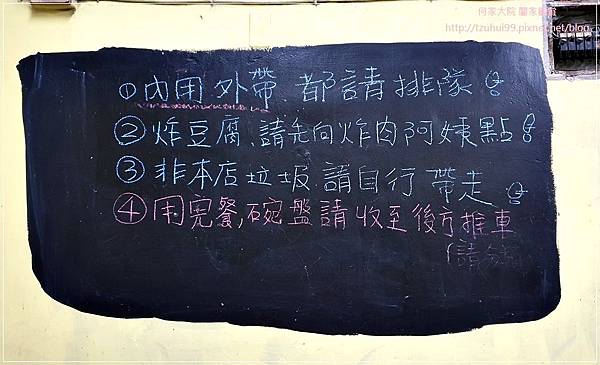 何家大院 闔家觀迎
http://tzuhui99.pixnet.net/blog
①內用外帶、都請排隊
②炸豆腐、請先向炸肉阿姨點
③非本店垃圾請自行帶走
④用完餐,碗盤請收至後方推車
(請分